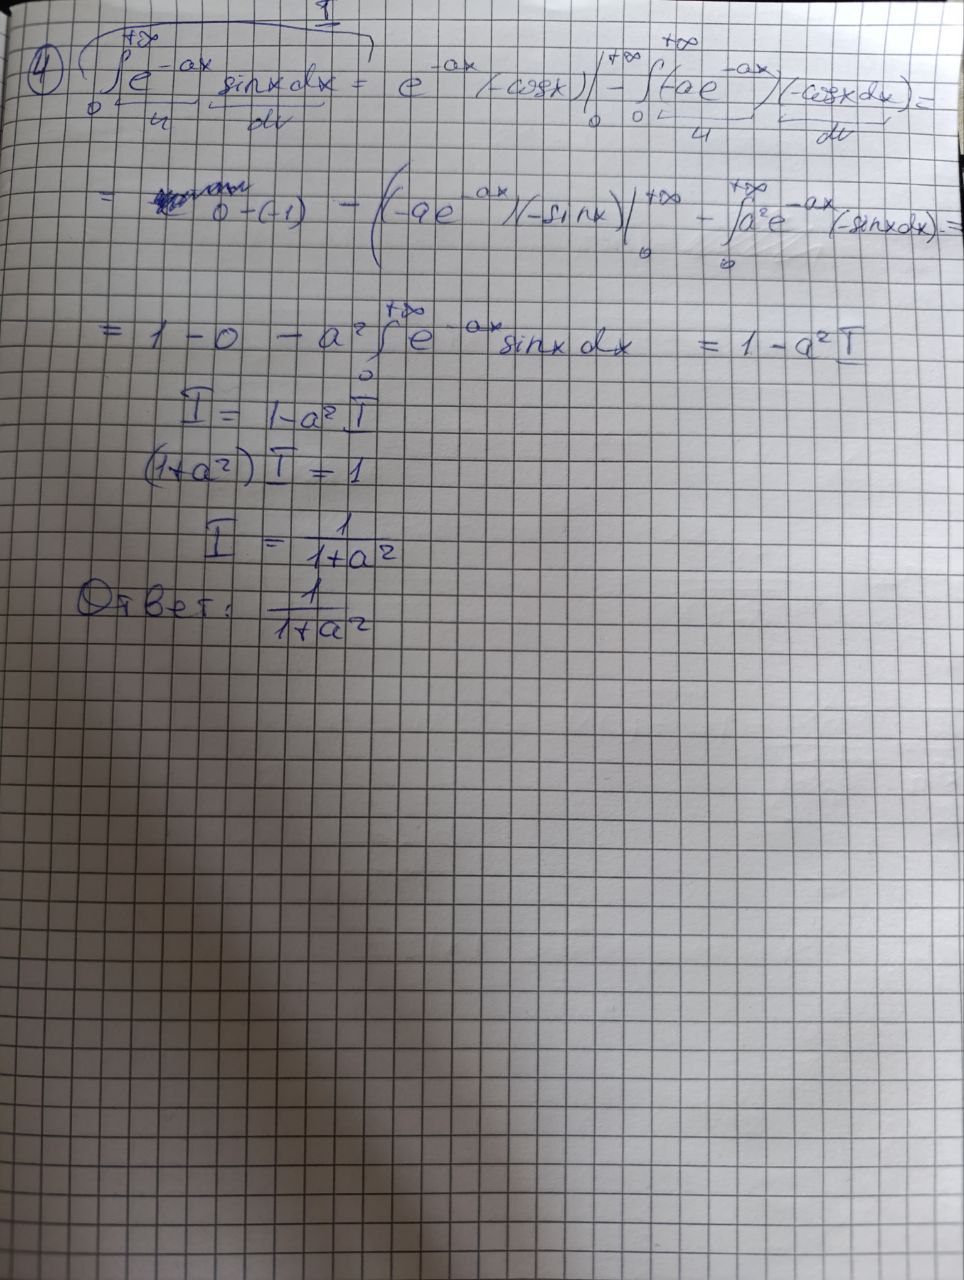 I
④ ∫₀^{+∞} e^{-ax} sinx dx = e^{-ax} (-cosx) |₀^{+∞} - ∫₀^{+∞} (-ae^{-ax}) (-cosx dx) =
u dv u dv
= 0 - (-1) - ((-ae^{-ax})(-sinx) |₀^{+∞} - ∫₀^{+∞} a²e^{-ax} (-sinxdx) =
= 1 - 0 - a² ∫₀^{+∞} e^{-ax} sinx dx = 1 - a² I
I = 1-a² I
(1+a²) I = 1
I = 1/(1+a²)
Ответ: 1/(1+a²)